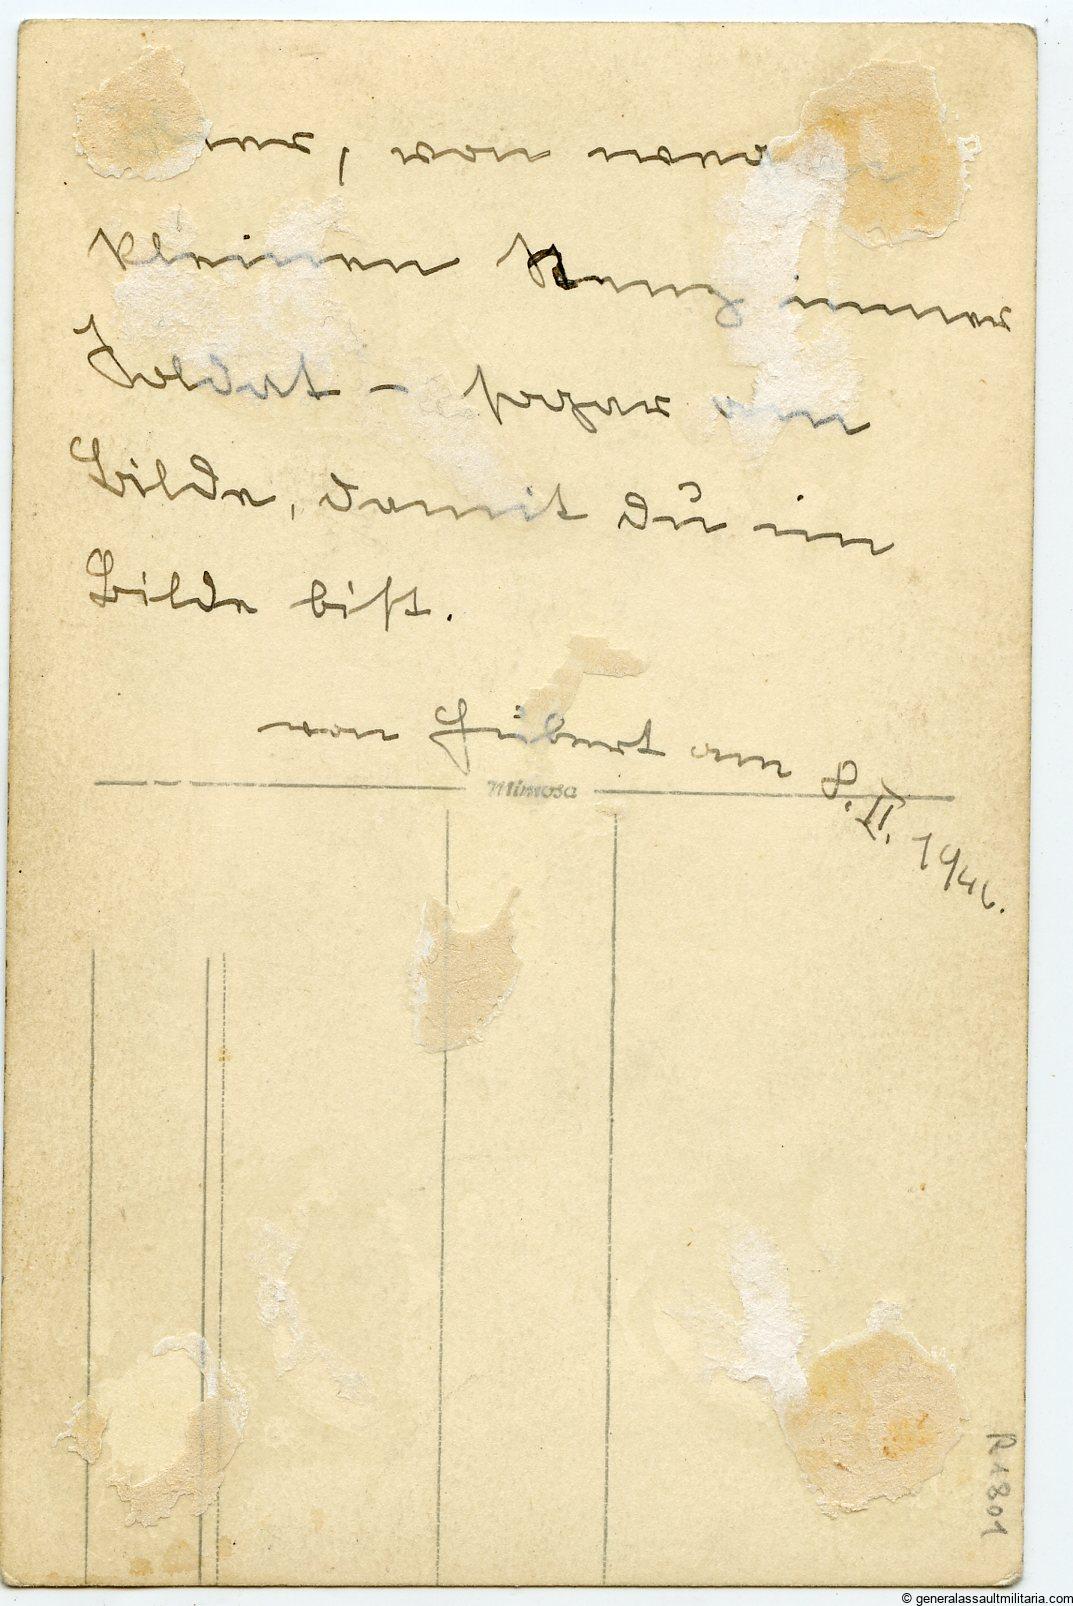 kleinen immer
Soldat – sogar am
Bilde, damit Du im
Bilde bist.
von Hubert am 8. II. 1946.
Mimosa
R1801
© generalassaultmilitaria.com